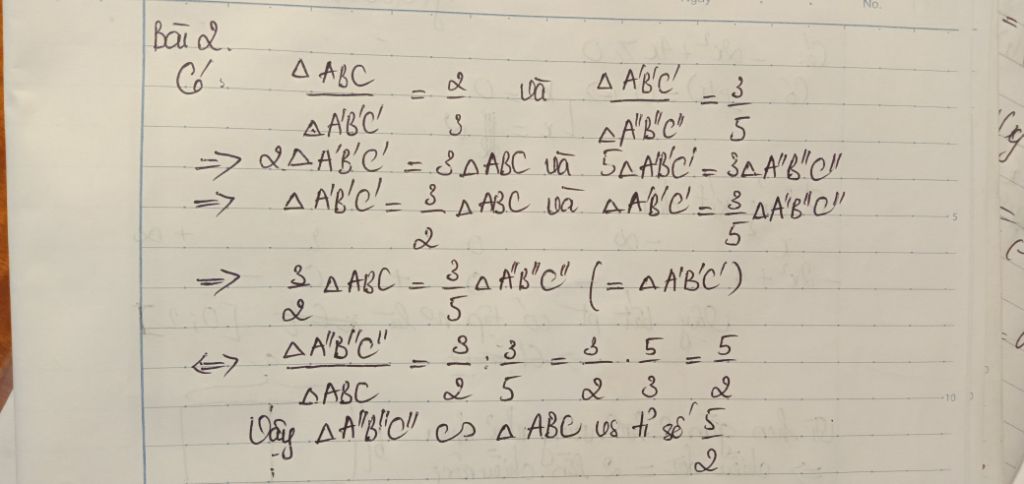 Bài 2.
Có: ΔABC/ΔA'B'C' = 2/3 và ΔA'B'C'/ΔA"B"C" = 3/5
=> 2ΔA'B'C' = 3ΔABC và 5ΔA'B'C' = 3ΔA"B"C"
=> ΔA'B'C' = 3/2 ΔABC và ΔA'B'C' = 3/5 ΔA"B"C"
=> 3/2 ΔABC = 3/5 ΔA"B"C" (= ΔA'B'C')
<=> ΔA"B"C"/ΔABC = 3/2 : 3/5 = 3/2 . 5/3 = 5/2
Vậy ΔA"B"C" ∽ ΔABC vs tỉ số 5/2
No.
5
10